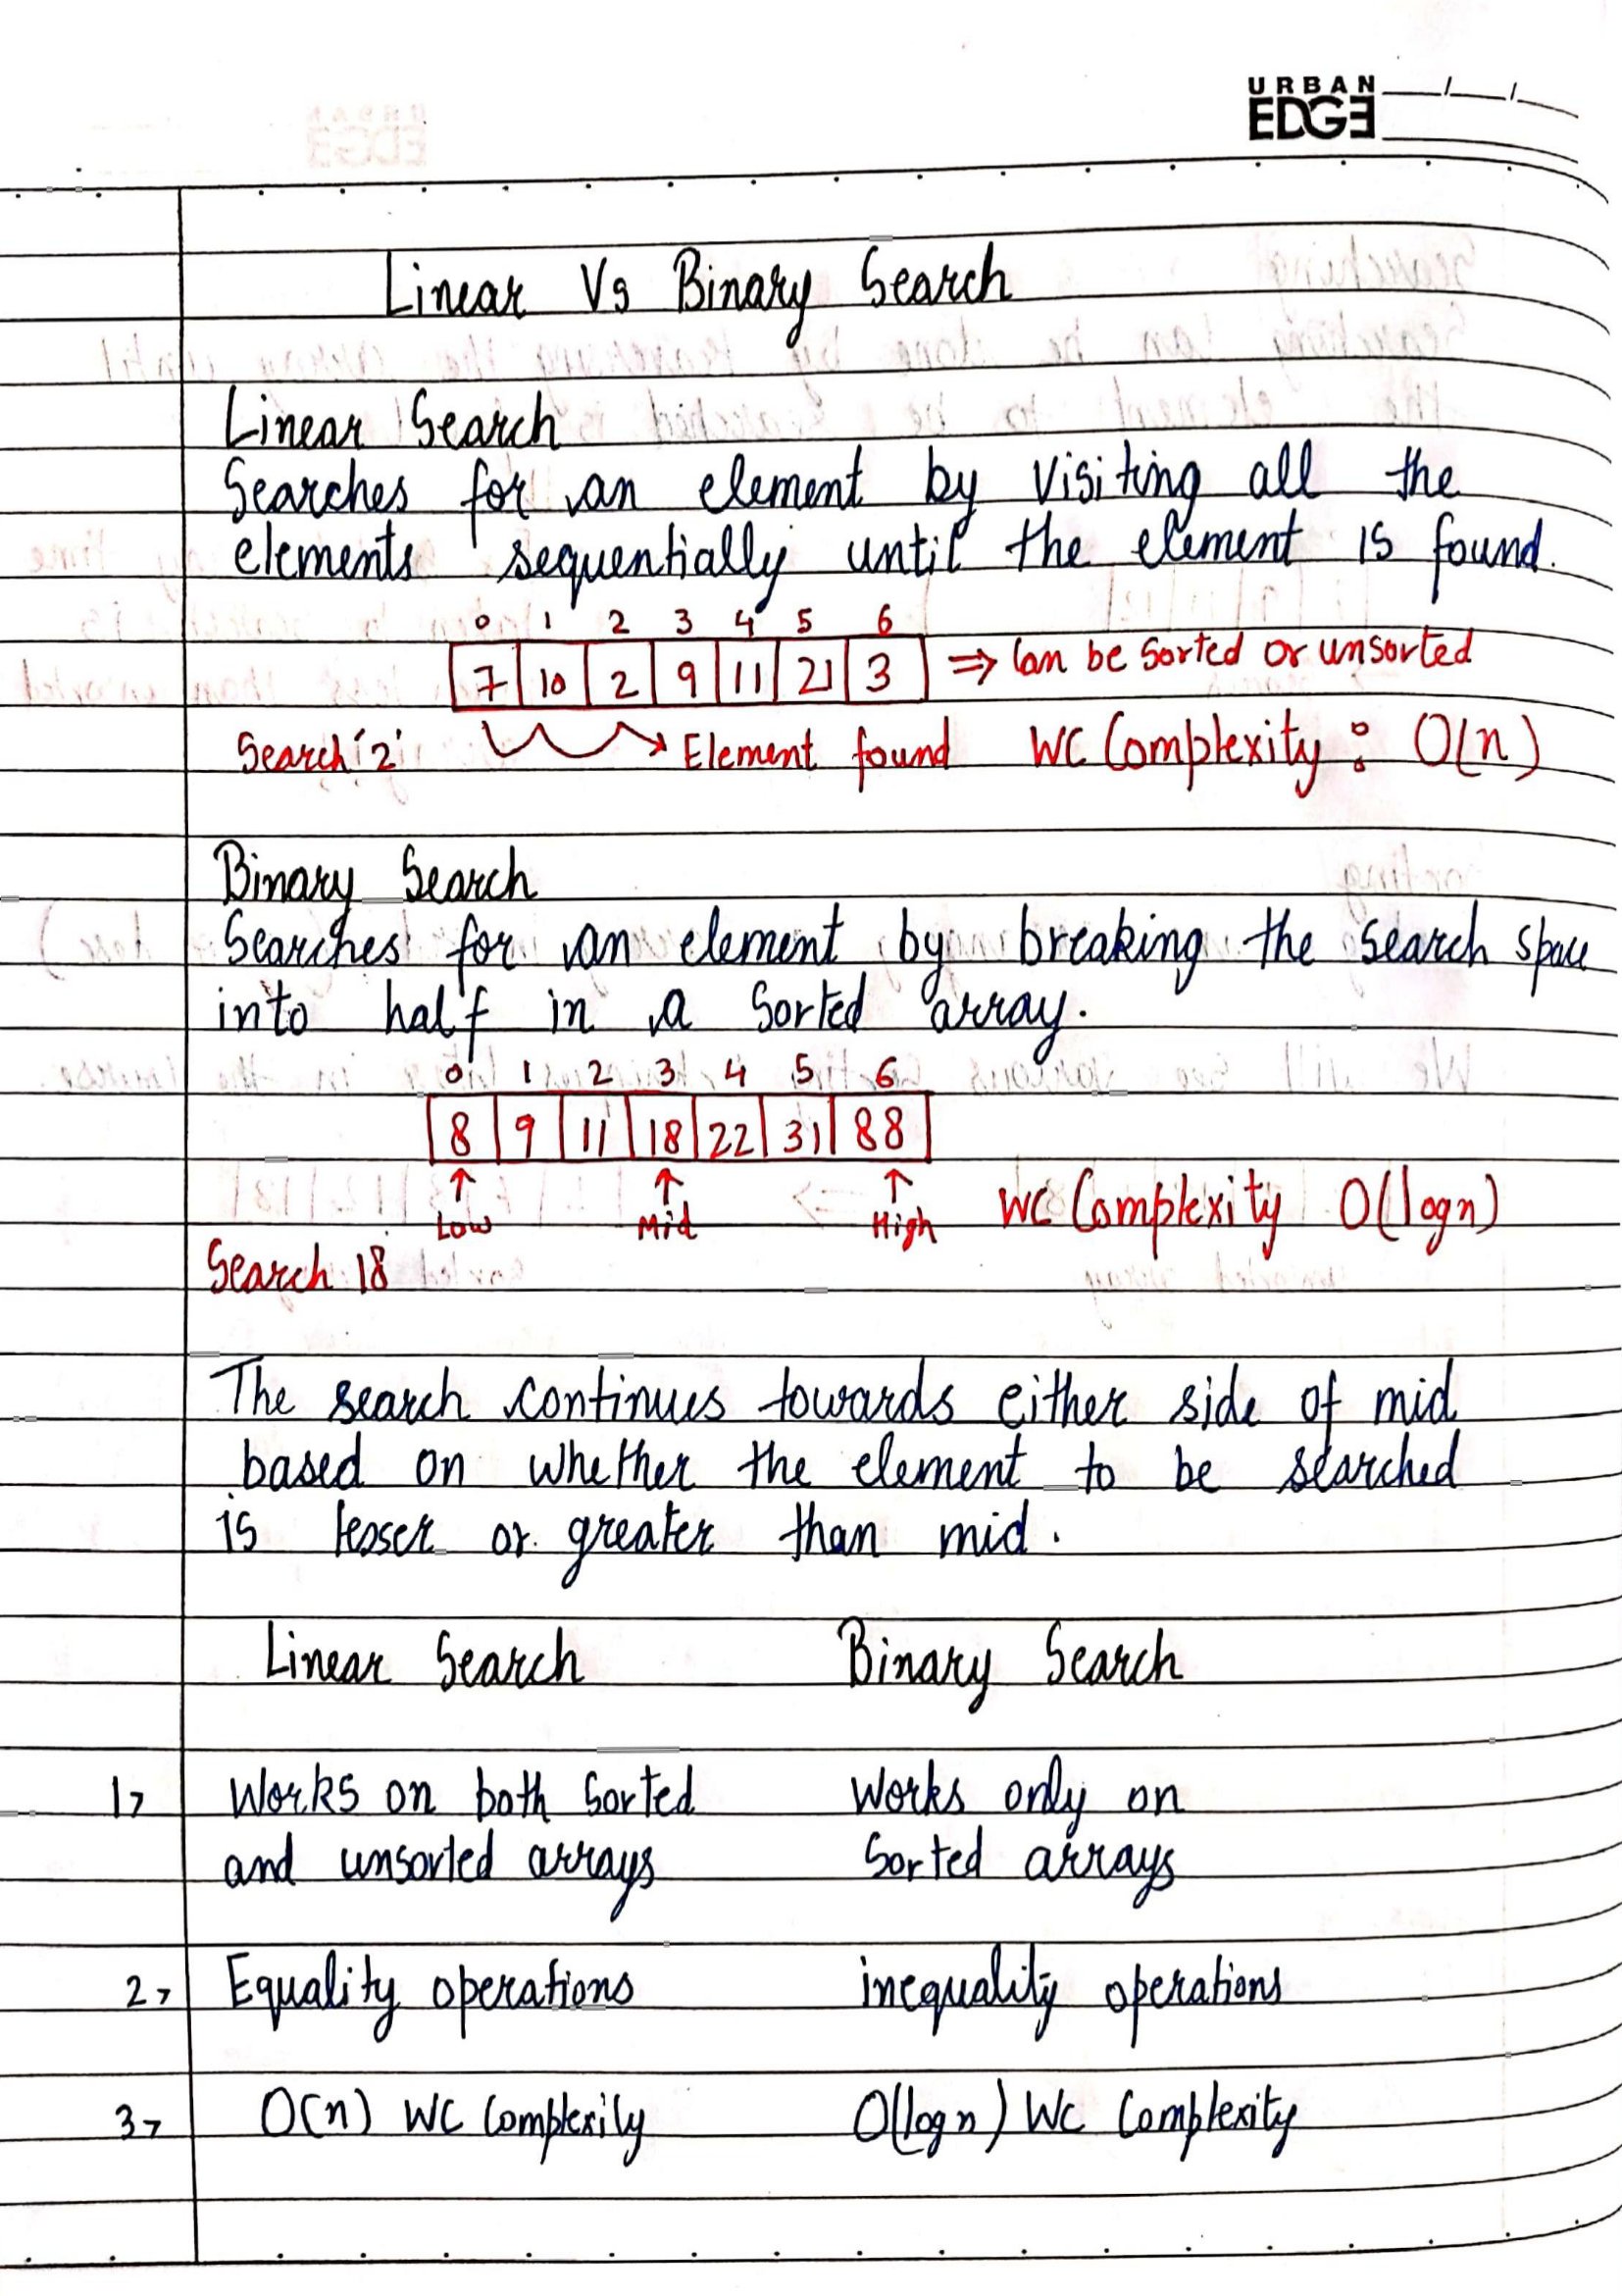 URBAN
EDGE
Linear Vs Binary Search
Linear Search
Searches for an element by visiting all the
elements sequentially until the element is found.
0 1 2 3 4 5 6
7 10 2 9 11 21 3 ⇒ Can be Sorted or unsorted
Search '2' Element found WC Complexity : O(n)
Binary Search
Searches for an element by breaking the search space
into half in a Sorted array.
0 1 2 3 4 5 6
8 9 11 18 22 31 88
↑ ↑ ↑
Low Mid High WC Complexity O(logn)
Search 18
The search continues towards either side of mid
based on whether the element to be searched
is lesser or greater than mid.
Linear Search Binary Search
1> Works on both Sorted Works only on
and unsorted arrays Sorted arrays
2> Equality operations inequality operations
3> O(n) WC Complexity O(logn) WC Complexity